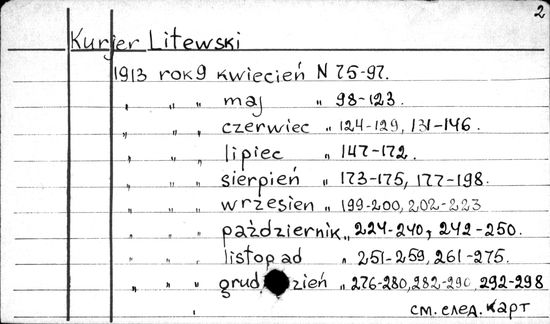 2
Kurjer Litewski
1913 rok 9 kwiecień N 75-97.
„ „ „ maj „ 98-123.
„ „ „ czerwiec „ 124-129, 131-146.
„ „ „ lipiec „ 147-172.
„ „ „ sierpień „ 173-175, 177-198.
„ „ „ wrzesien „ 199-200, 202-223
„ „ „ październik „ 224-240, 242-250.
„ „ „ listopad „ 251-259, 261-275.
„ „ „ grudzień „ 276-280, 282-290, 292-298
см. след. карт